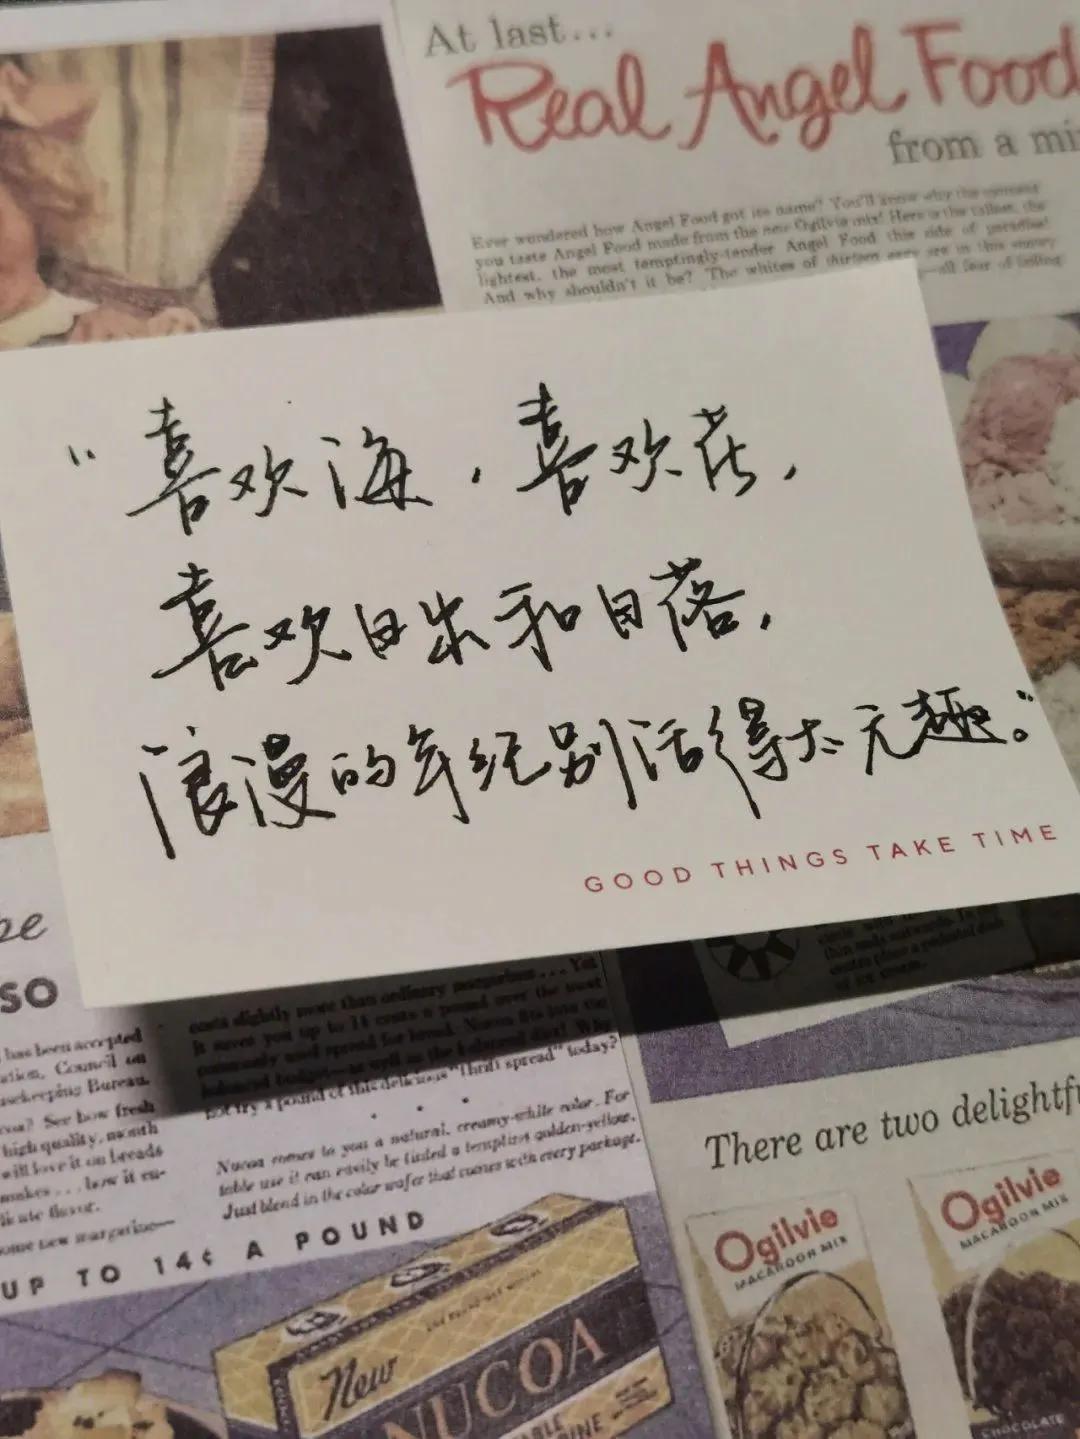 At last...
Real Angel Food
from a mi
Ever wondered how Angel Food got its name? You'll know why the moment
you taste Angel Food made from the new Ogilvie mix! Here is the tallest, the
lightest, the most temptingly-tender Angel Food this side of paradise!
And why shouldn't it be? The whites of thirteen eggs are in this
—all fear of failing
“喜欢海，喜欢花，
喜欢日出和日落，
浪漫的年纪别活得太无趣。”
GOOD THINGS TAKE TIME
so
has been accepted
Council on
Bureau.
See how fresh
high quality,
will love it on breads
makes...
flavor.
UP TO 14¢ A POUND
costs slightly more than ordinary margarine... Yet
it saves you up to 14 cents a pound over the most
commonly used spread for bread. Nucoa fits into the
balanced budget—as well as the balanced diet! Why
not try a pound of this delicious "Thrift spread" today?
Nucoa comes to you a natural, creamy-white color. For
table use it can easily be tinted a tempting golden-yellow.
Just blend in the color wafer that comes with every package.
New
NUCOA
There are two delightf
Ogilvie
MACAROON MIX
Ogilvie
MACAROON MIX
CHOCOLATE